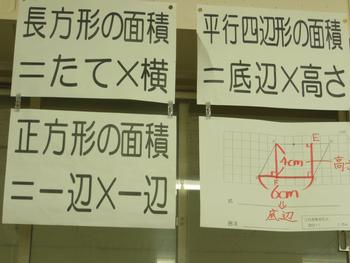 長方形の面積
＝たて×横
平行四辺形の面積
＝底辺×高さ
正方形の面積
＝一辺×一辺
E
4cm
高さ
B
6cm
底辺